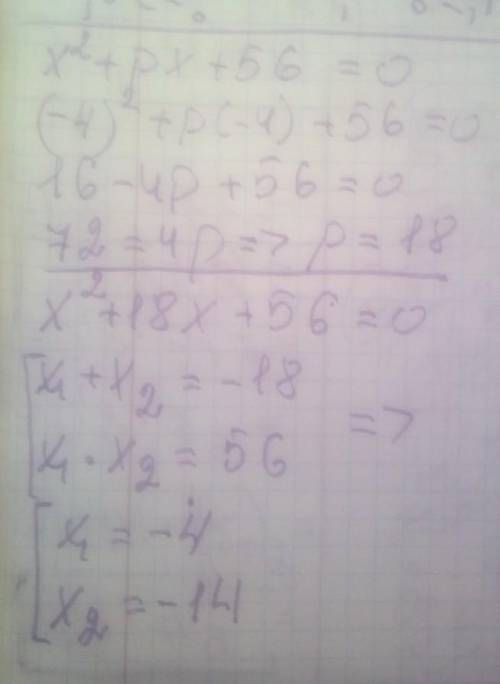 x² + px + 56 = 0
(-4)² + p(-4) + 56 = 0
16 - 4p + 56 = 0
72 = 4p => p = 18
x² + 18x + 56 = 0
x₁ + x₂ = -18
x₁ · x₂ = 56 =>
x₁ = -4
x₂ = -14